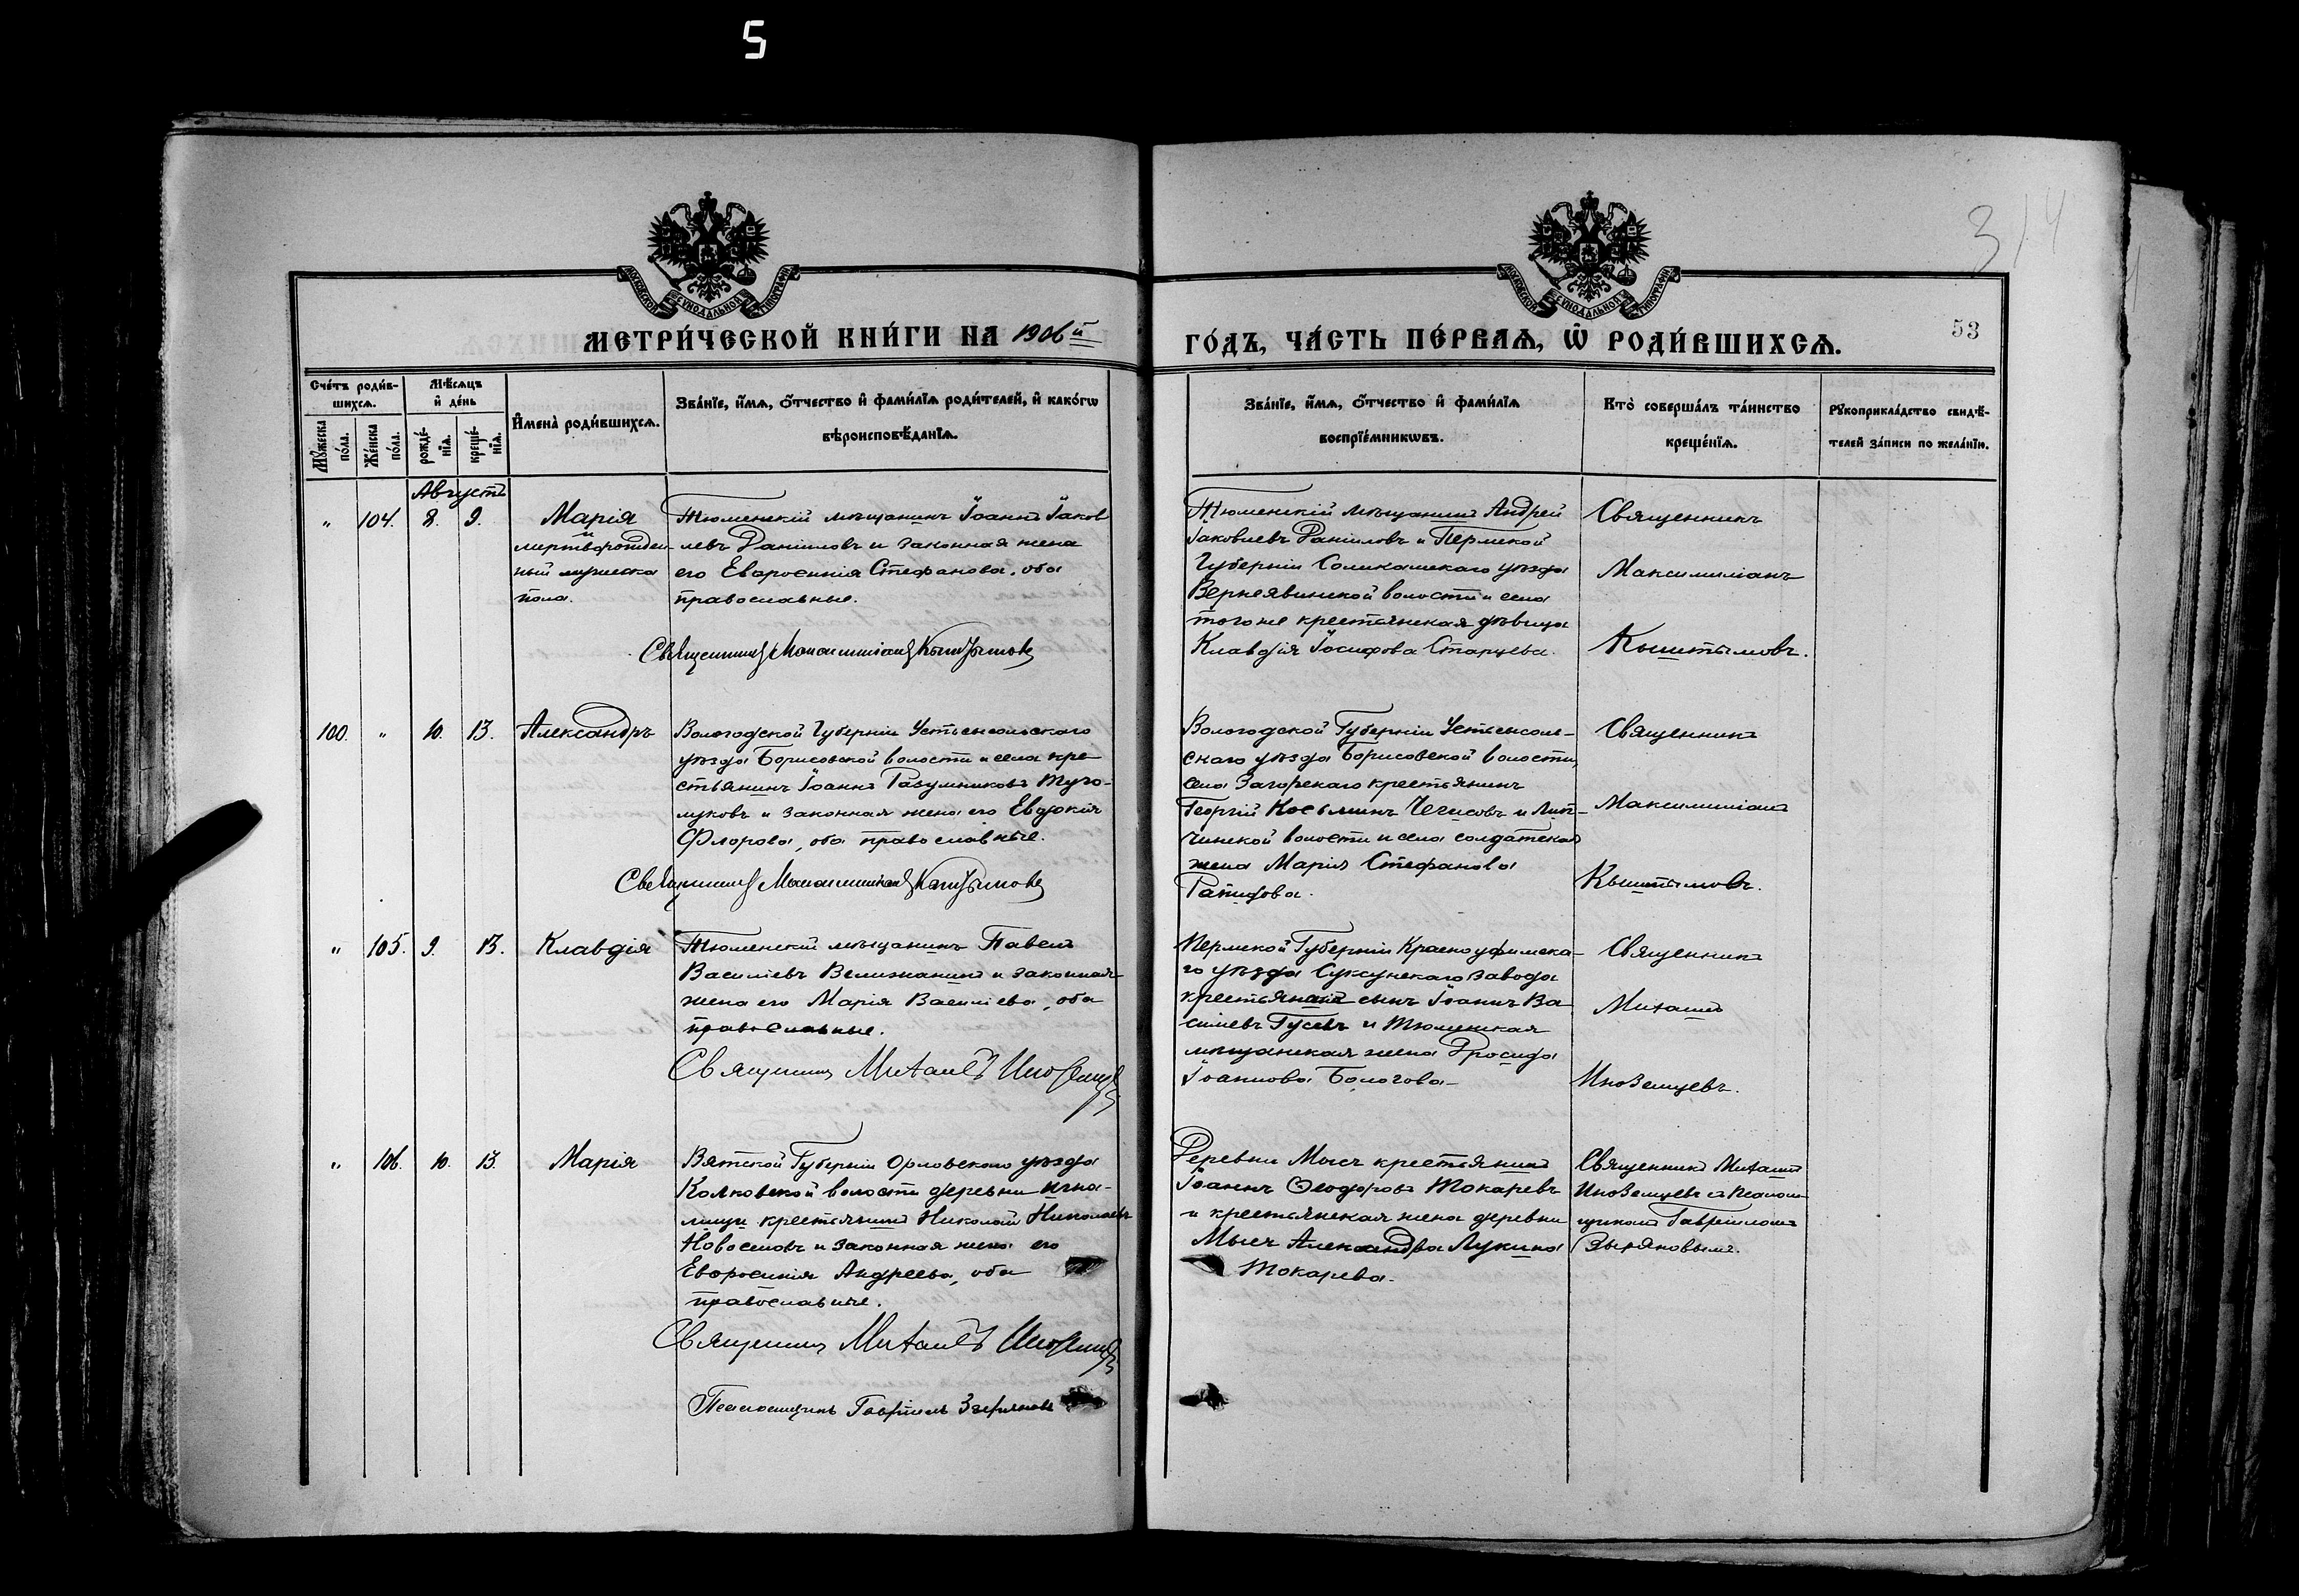 5
314
53
МОСКОВСКОЙ СѴНОДАЛЬНОЙ ТИПОГРАФІИ
МЕТРИ́ЧЕСКОЙ КНИ́ГИ НА 1906й
МОСКОВСКОЙ СѴНОДАЛЬНОЙ ТИПОГРАФІИ
ГО́ДЪ, ЧА́СТЬ ПЕ́РВАѦ, Ѡ҆ РОДИ́ВШИХСѦ.
Сче́тъ роди́в-
шихсѧ.
Мꙋ́жеска по́ла.
Же́нска по́ла.
Мѣ́сѧцъ
и҆ де́нь
рожде́-
нїѧ.
креще́-
нїѧ.
И҆мена̀ роди́вшихсѧ.
Зва́нїе, и҆́мѧ, ѻ҆́тчество и҆ фами́лїѧ роди́телей, и҆ како́гѡ
вѣроисповѣ́данїѧ.
Зва́нїе, и҆́мѧ, ѻ҆́тчество и҆ фами́лїѧ
воспрїе́мникѡвъ.
Кто̀ соверша́лъ та́инство
креще́нїѧ.
Рꙋкоприкла́дство свидѣ́-
телей за́писи по жела́нїю.
Августъ
" 104. 8. 9.
Марія
и
мертворожден-
ный мужеска
пола.
Тюменскій мѣщанинъ Іоаннъ Іаков
левъ Даниловъ и законная жена
его Евфросинія Стефанова, оба
православные.
Священникъ Максимиліанъ Кыштымовъ
Тюменскій мѣщанинъ Андрей
Іаковлевъ Даниловъ и Пермской
Губерніи Соликамскаго уѣзда
волости и села
того же крестьянская дѣвица
Клавдія Іосифова Старцева.
Священникъ
Максимиліанъ
Кыштымовъ.
100. " 10. 13.
Александръ
Вологодской Губерніи Устьсысольскаго
уѣзда Борисовской волости и села кре
стьянинъ Іоаннъ Разумниковъ
и законная жена его Евдокія
Флорова, оба православные.
Священникъ Максимиліанъ Кыштымовъ
Вологодской Губерніи Устьсысоль-
скаго уѣзда Борисовской волости,
села Загорскаго крестьянинъ
Георгій Косьминъ и Лип-
чинской волости и села солдатская
жена Марія Стефанова
Священникъ
Максимиліанъ
Кыштымовъ.
" 105. 9. 13.
Клавдія
Тюменскій мѣщанинъ Павелъ
Василіевъ Велижанинъ и законная
жена его Марія Василіева, оба
православные.
Священникъ Михаилъ Иноземцевъ
Пермской Губерніи Красноуфимска-
го уѣзда Суксунскаго завода
крестьянскій сынъ Іоаннъ Ва
силіевъ Гусевъ и Тюменская
мѣщанская жена Дросида
Іоаннова Бологова
Священникъ
Михаилъ
Иноземцевъ.
" 106. 10. 13.
Марія
Вятской Губерніи Орловскаго уѣзда
Колковской волости деревни
крестьянинъ Николай Николаевъ
Новоселовъ и законная жена его
Евфросинія Андреева, оба
православные.
Священникъ Михаилъ Иноземцевъ
Псаломщикъ Гавріилъ Зыряновъ
Деревни Мыса крестьянинъ
Іоаннъ Ѳеодоровъ Токаревъ
и крестьянская жена деревни
Мыса Александра Лукина
Токарева.
Священникъ Михаилъ
Иноземцевъ съ псалом-
щикомъ Гавріиломъ
Зыряновымъ.